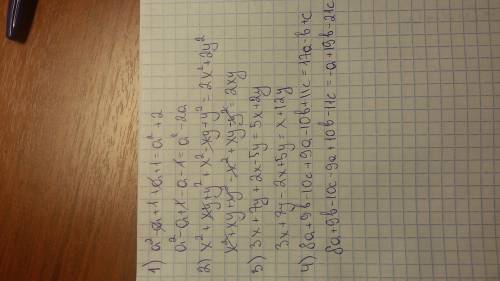 1) a²-a+1+a+1=a²+2
a²-a+1-a-1=a²-2a
2) x²+xy+y²+x²-xy+y²=2x²+2y²
x²+xy+y²-x²+xy-y²=2xy
3) 3x+7y+2x-5y=5x+2y
3x+7y-2x+5y=x+12y
4) 8a+9b-10c+9a-10b+11c=17a-b+c
8a+9b-10c-9a+10b-11c=-a+19b-21c